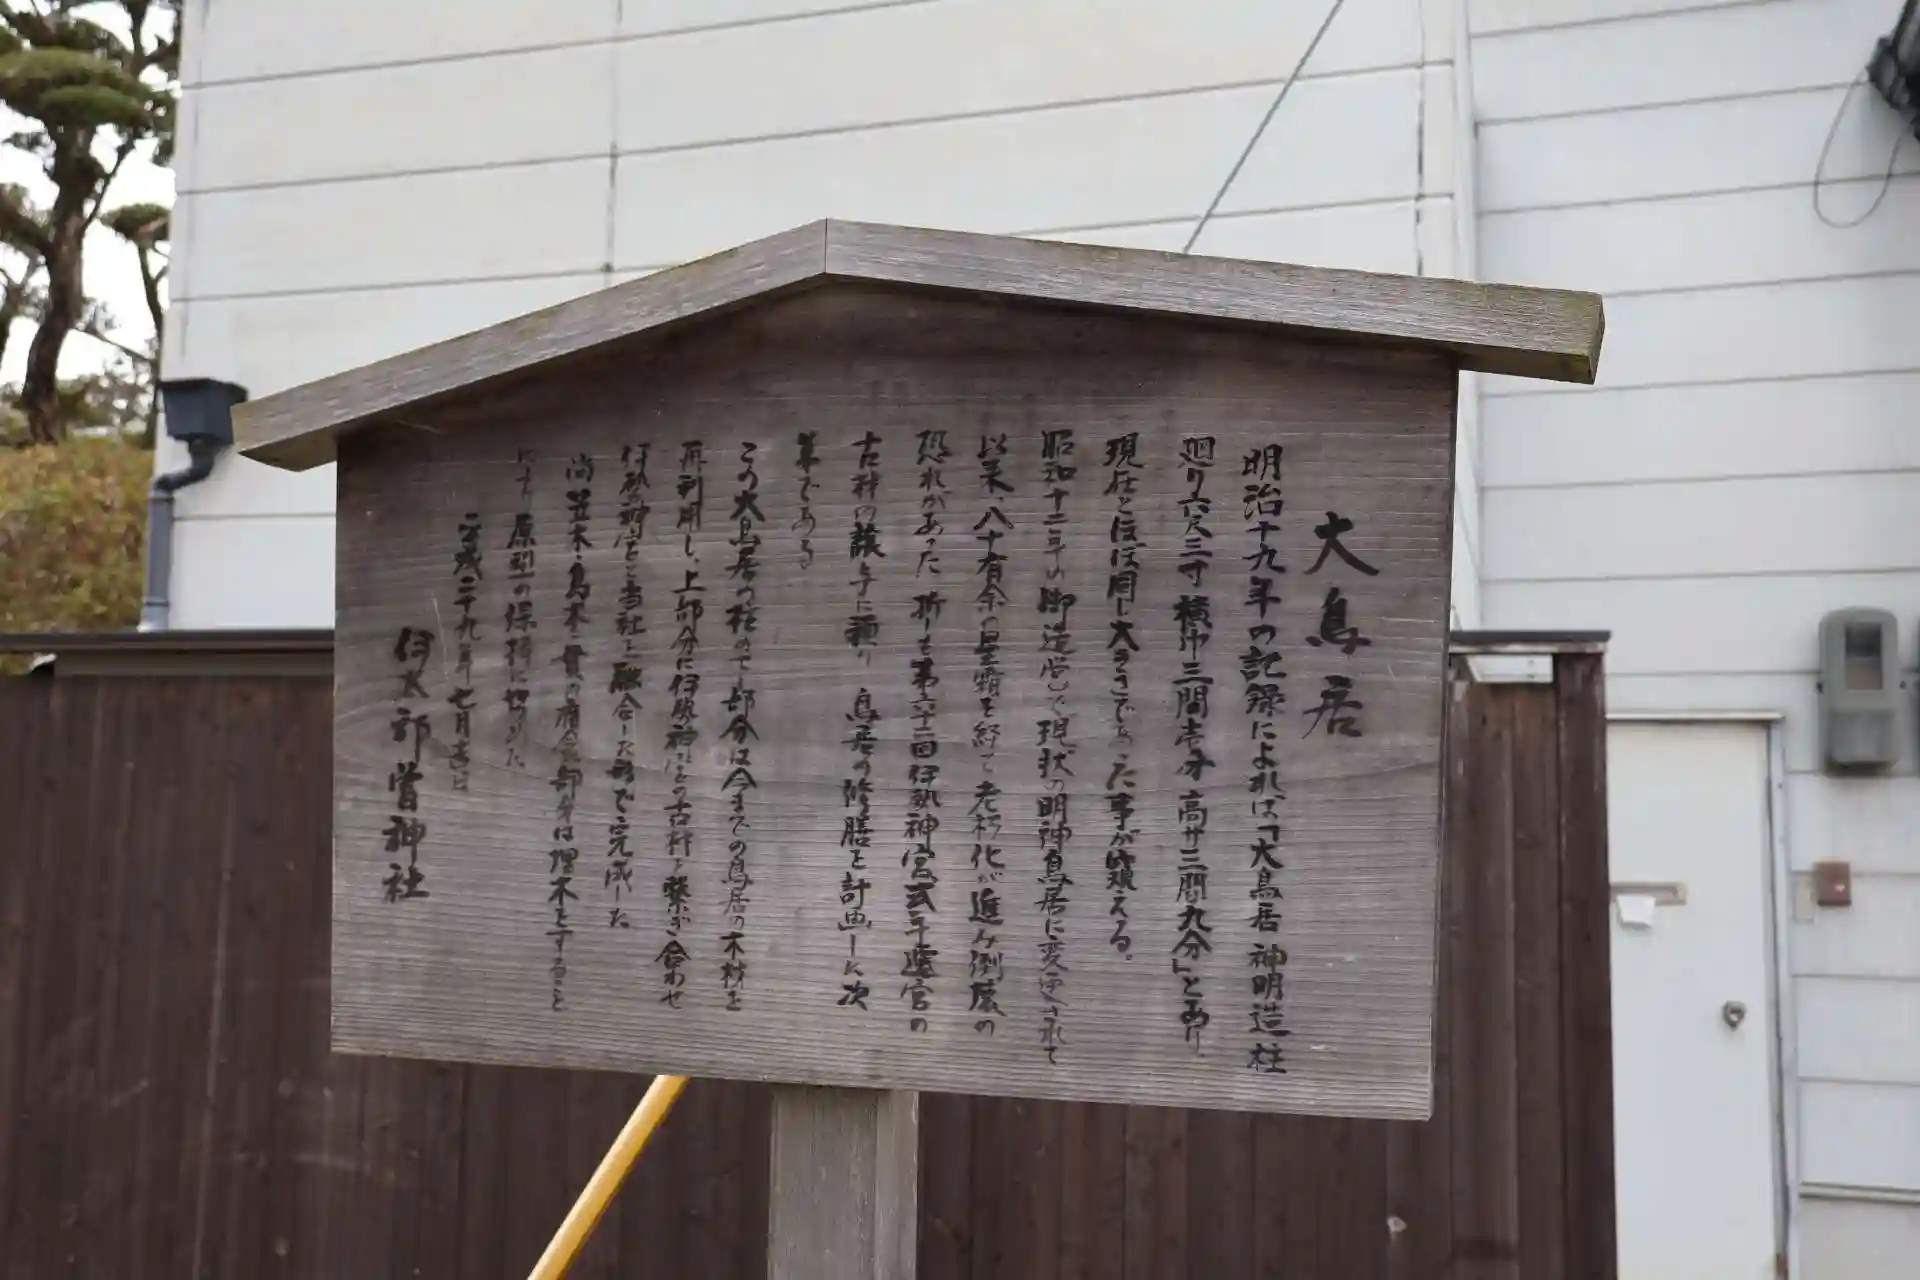 大鳥居
明治十九年の記録によれば「大鳥居 神明造 柱
廻り六尺三寸 横巾三間壱分 高サ三間九分」とあり、
現在とほぼ同じ大きさであった事が窺える。
昭和十二年の御造営で現状の明神鳥居に変更されて
以来、八十有余の星霜を経て老朽化が進み倒壊の
恐れがあった 折しも第六十二回伊勢神宮式年遷宮の
古材の譲与に預り 鳥居の修膳を計画した次
第である
この大鳥居の柱の下部分は今までの鳥居の木材を
再利用し、上部分に伊勢神宮の古材を繋ぎ合わせ
伊勢神宮と当社と融合した形で完成した
尚 笠木・島木・貫の
にて原型の保持に努めた
平成二十九年 七月
伊太祁曽神社